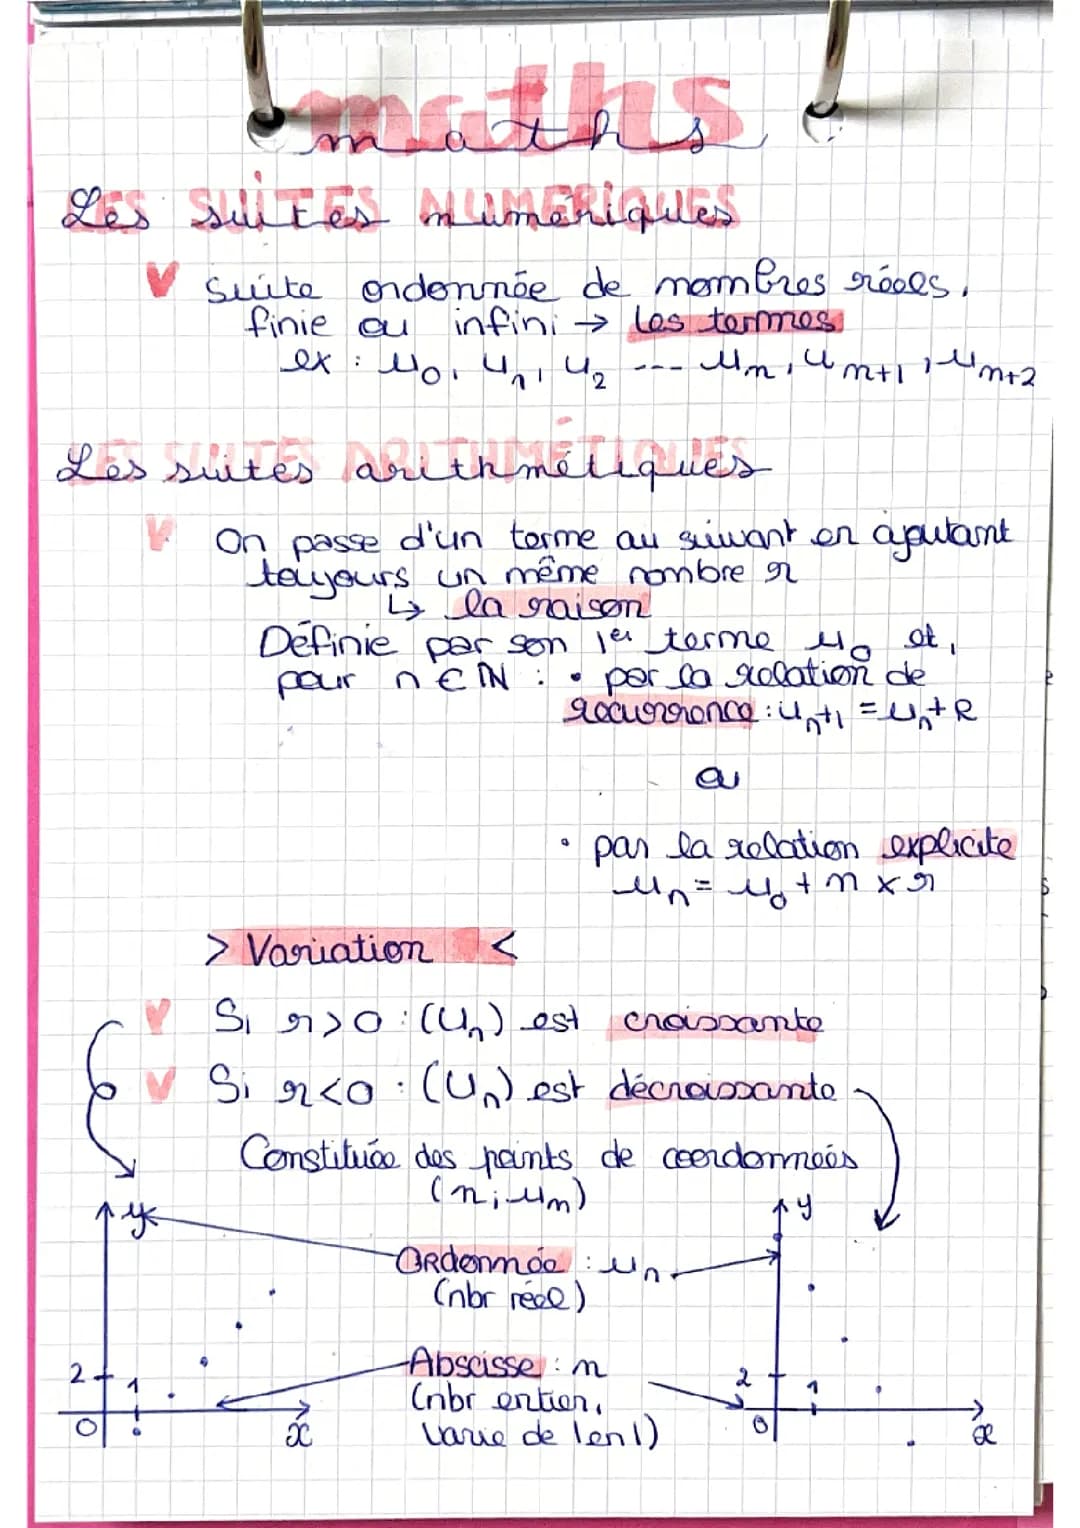 maths
Les suites numériques
Suite ordonnée de nombres réels,
finie ou infini → les termes
ex : u₀, u₁, u₂ --- uₙ, uₙ₊₁, uₙ₊₂
Les suites arithmétiques
On passe d'un terme au suivant en ajoutant
toujours un même nombre r
↳ la raison
Définie par son 1er terme u₀ et,
pour n ∈ ℕ : • par la relation de
récurrence : uₙ₊₁ = uₙ + R
ou
• par la relation explicite
uₙ = u₀ + n × r
> Variation <
Si r > 0 : (Uₙ) est croissante
Si r < 0 : (Uₙ) est décroissante
Constituée des points de coordonnées
(n ; uₙ)
y
y
Ordonnée : uₙ
(nbr réel)
Abscisse : n
(nbr entier,
varie de 1 en 1)
2
1
0
x
2
1
0
x